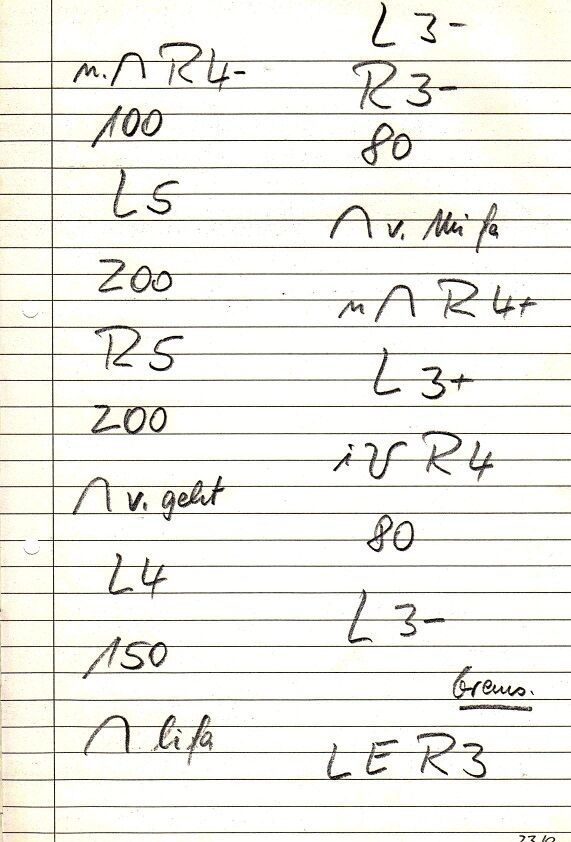 n. ∩ R 4-
100
L 5
200
R 5
200
∩ v. geht
L 4
150
∩ lifa
L 3-
R 3-
80
∩ v. Mi fa
n ∩ R 4+
L 3+
R 4
80
L 3-
brems.
L E R 3